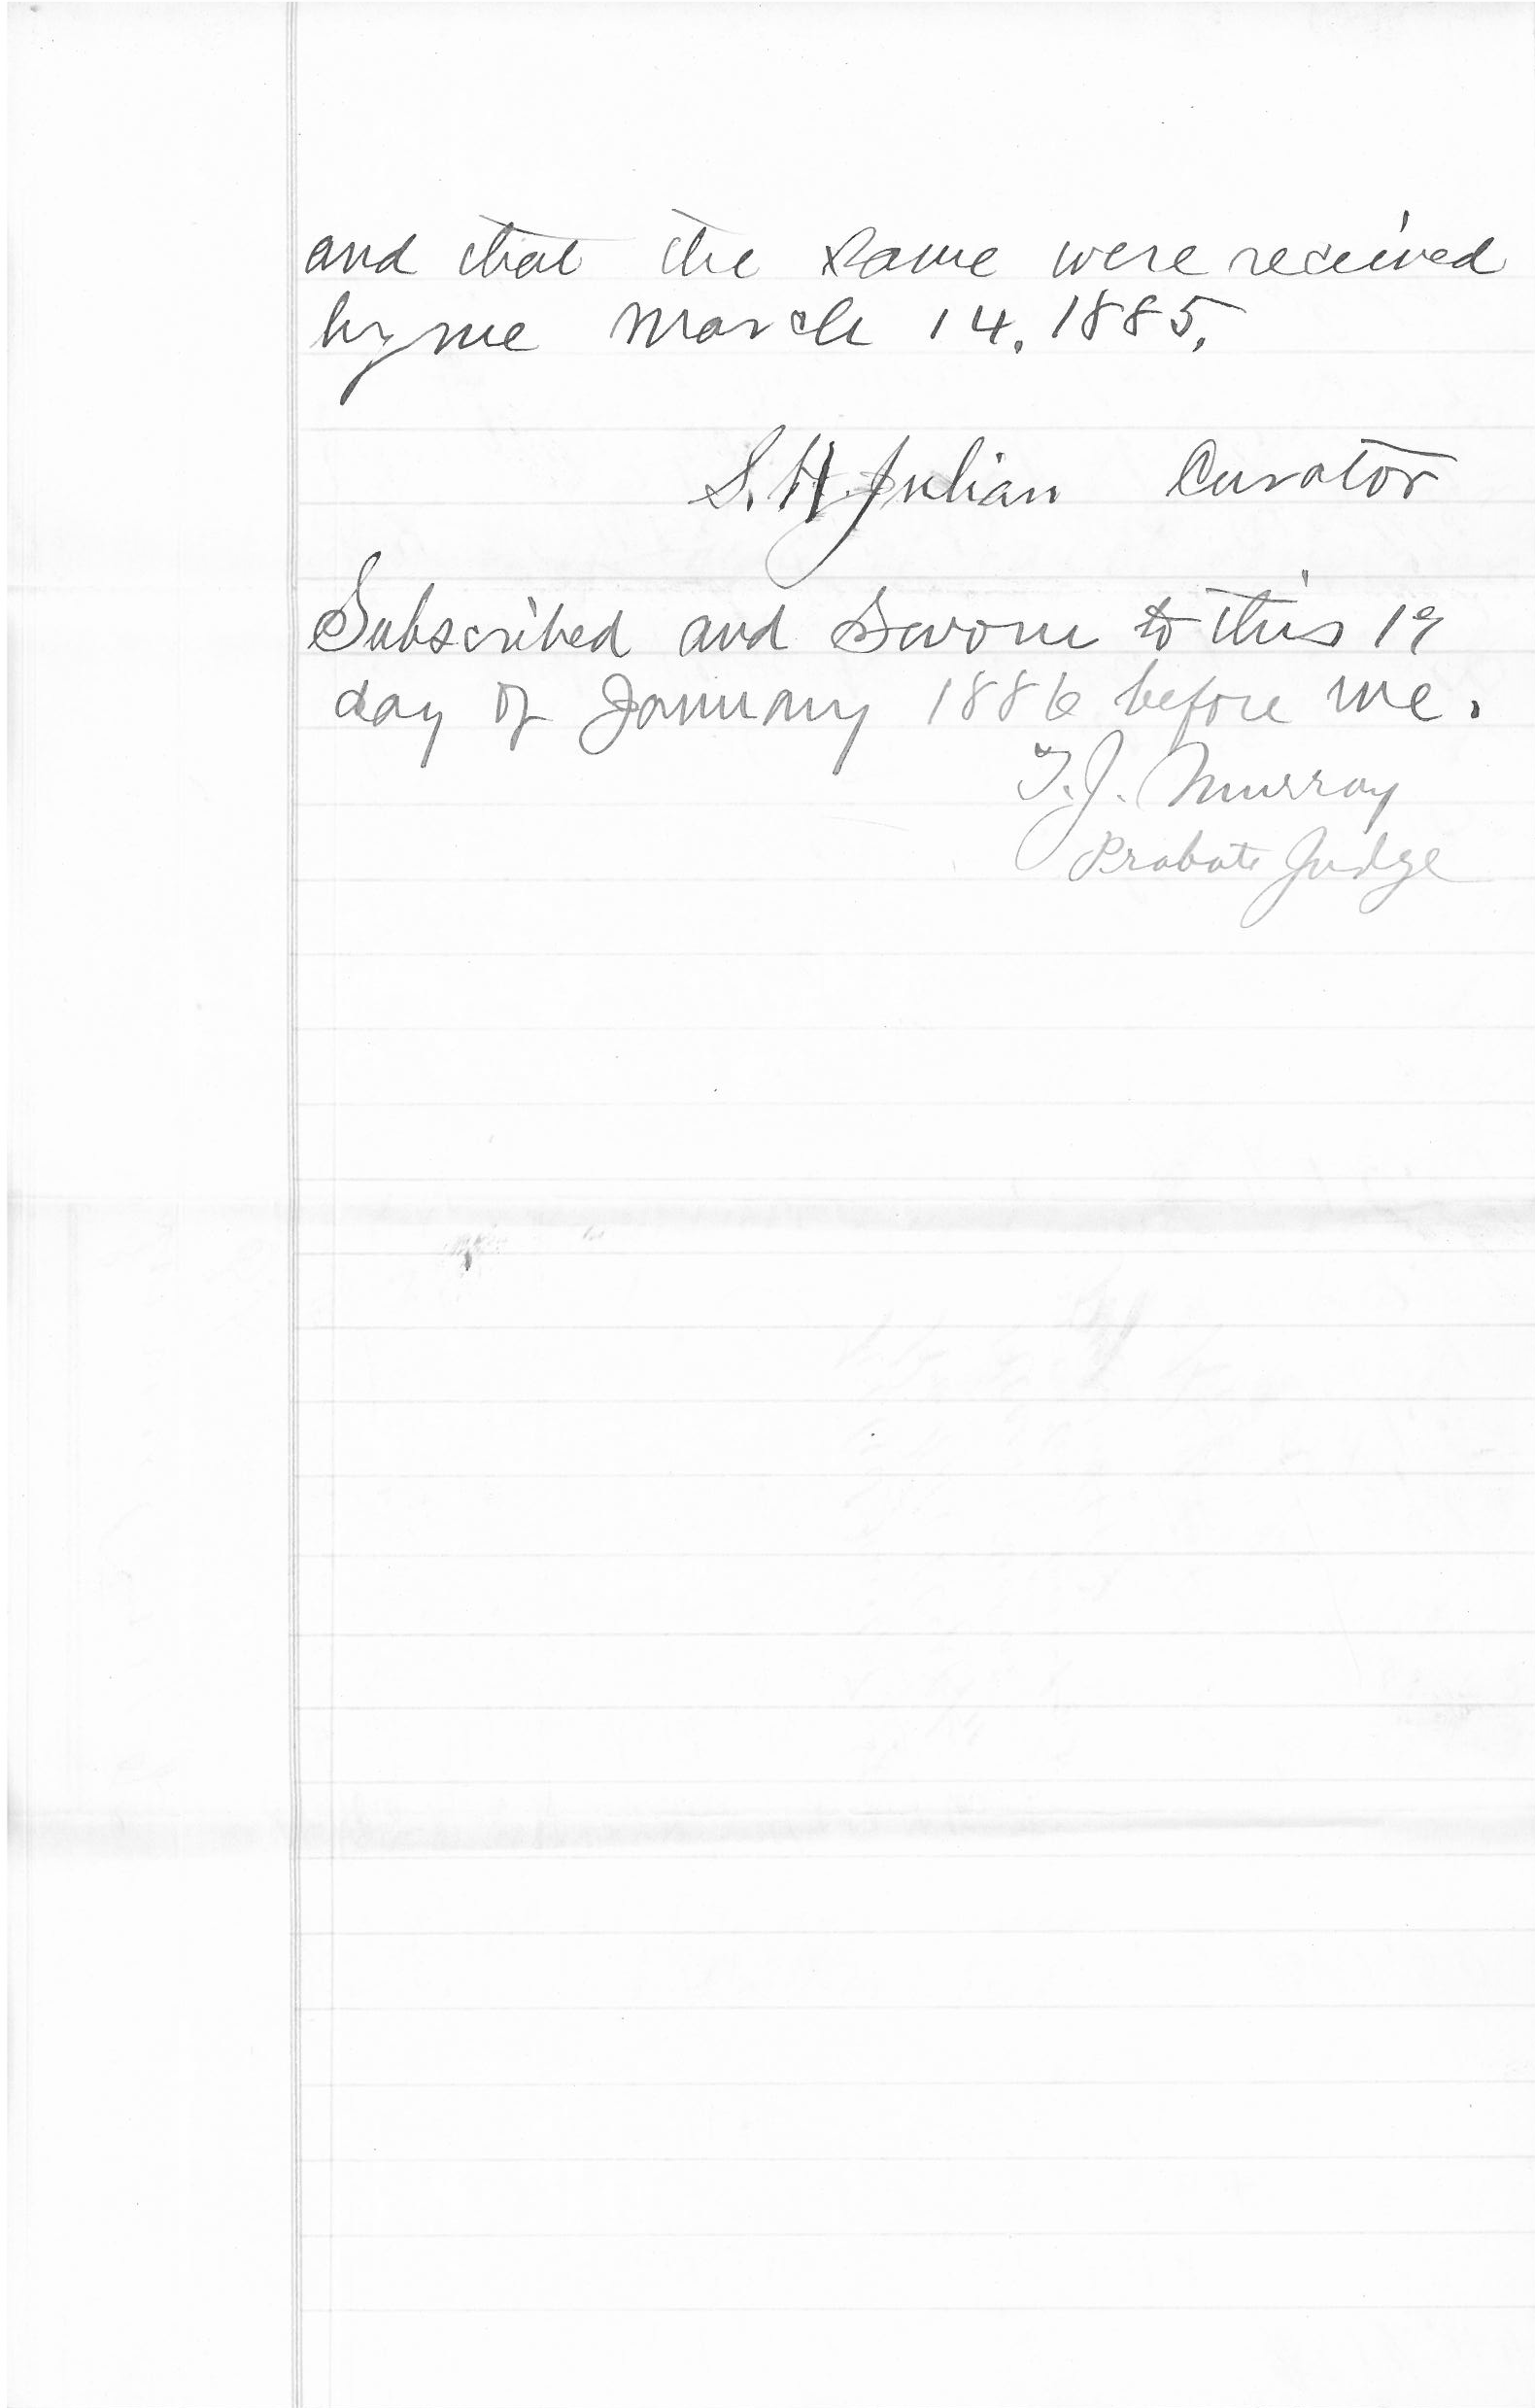 and that the same were received
by me March 14. 1885.
S. H. Julian Curator
Subscribed and Sworn to this 19
day of January 1886 before me.
T. J. Murray
Probate Judge